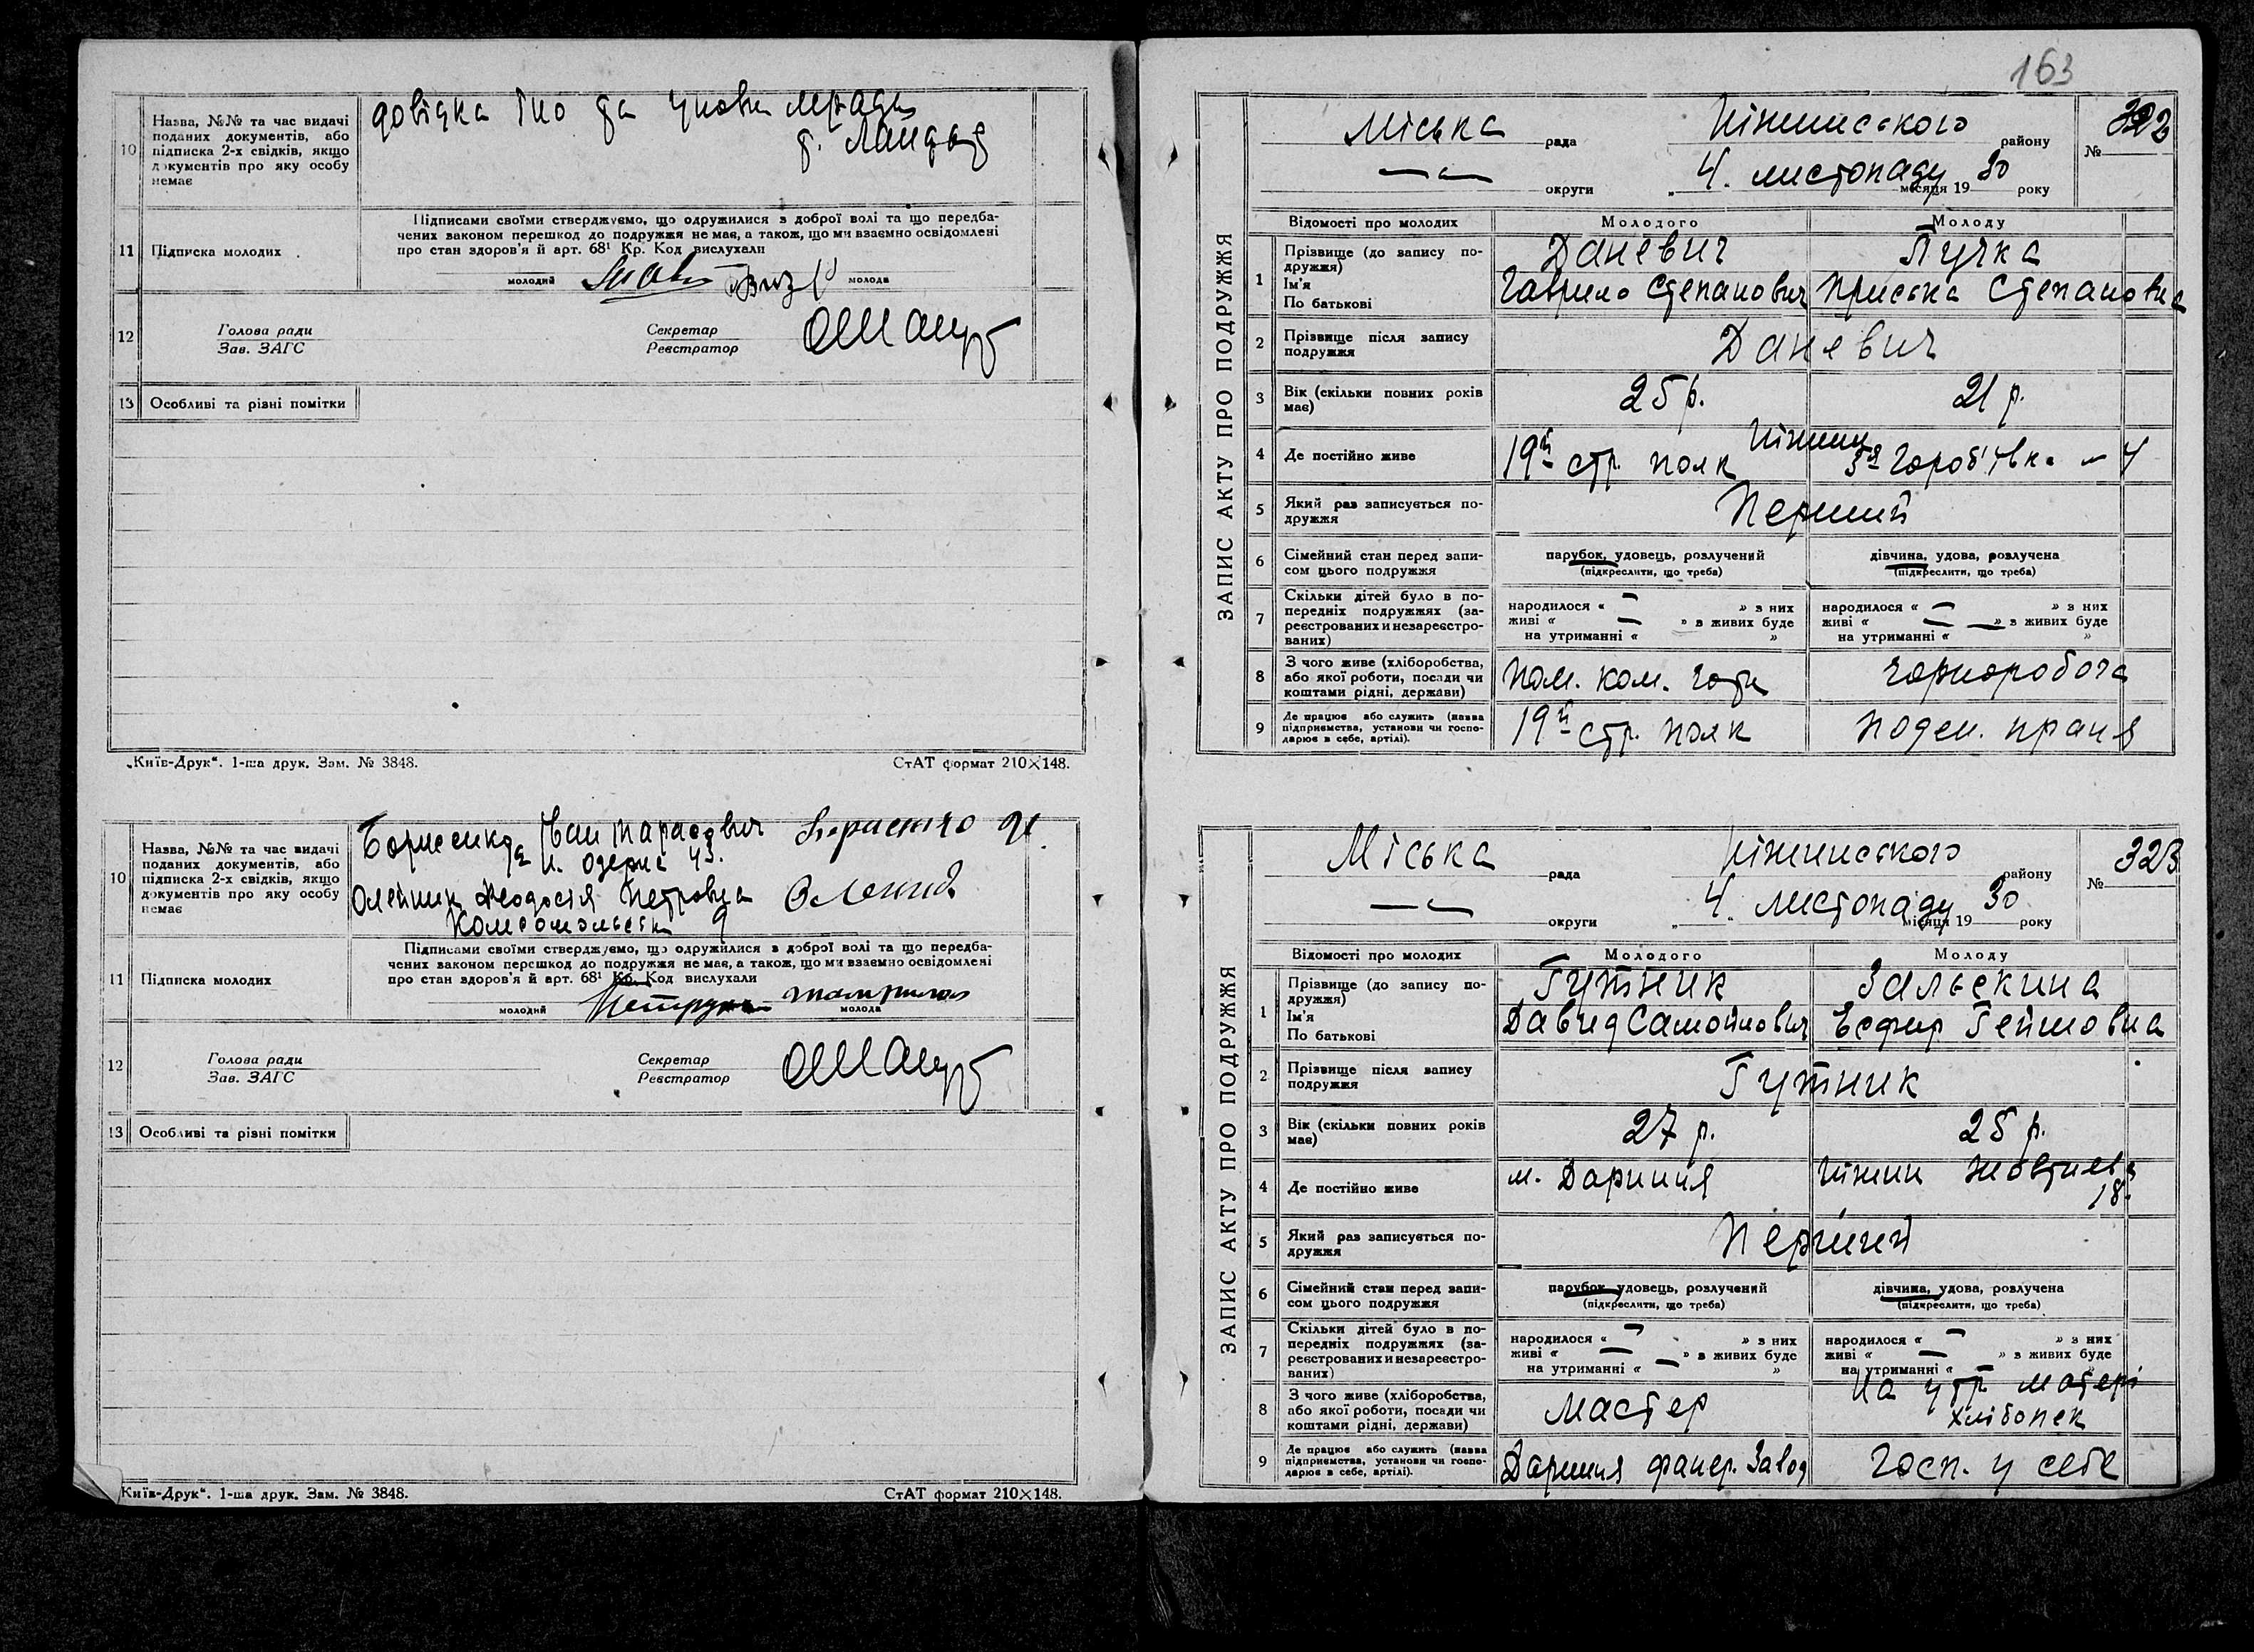 10
Назва, №№ та час видачі
поданих документів, або
підписка 2-х свідків, якщо
документів про яку особу
немає
довідка
11
Підписка молодих
Підписами своїми стверджуємо, що одружилися з доброї волі та що передба-
чених законом перешкод до подружжя не має, а також, що ми взаємно освідомлені
про стан здоров'я й арт. 68¹ Кр. Код вислухали
молодий
молода
12
Голова ради
Зав. ЗАГС
Секретар
Реєстратор
13
Особливі та різні помітки
„Київ-Друк“. 1-ша друк. Зам. № 3848.
СтАТ формат 210×148.
10
Назва, №№ та час видачі
поданих документів, або
підписка 2-х свідків, якщо
документів про яку особу
немає
Борисенко Іван Тарасович
Олейник Феодосія Петровна
Комсомольська 9
11
Підписка молодих
Підписами своїми стверджуємо, що одружилися з доброї волі та що передба-
чених законом перешкод до подружжя не має, а також, що ми взаємно освідомлені
про стан здоров'я й арт. 68¹ Кр. Код вислухали
молодий
молода
12
Голова ради
Зав. ЗАГС
Секретар
Реєстратор
13
Особливі та різні помітки
Київ-Друк“. 1-ша друк. Зам. № 3848.
СтАТ формат 210×148.
163
ЗАПИС АКТУ ПРО ПОДРУЖЖЯ
Міська рада Ніжинського району
округи „ 4. листопаду місяця 1930 року
№ 322
Відомості про молодих
Молодого
Молоду
1
Прізвище (до запису по-
дружжя)
Ім'я
По батькові
Даневич
Гаврило Степанович
Пучка
Приська Степановна
2
Прізвище після запису
подружжя
Даневич
3
Вік (скільки повних років
має)
25 р.
21 р.
4
Де постійно живе
19й стр. полк
Ніжин
5
Який раз записується по-
дружжя
Перший
6
Сімейний стан перед запи-
сом цього подружжя
парубок, удовець, розлучений
(підкреслити, що треба)
дівчина, удова, розлучена
(підкреслити, що треба)
7
Скільки дітей було в по-
передніх подружжях (за-
реєстрованих и незареєстро-
ваних)
народилося « — » з них
живі « — » в живих буде
на утриманні « »
народилося « — » з них
живі « — » в живих буде
на утриманні « »
8
З чого живе (хліборобства,
або якої роботи, посади чи
коштами рідні, держави)
пом. ком. роти
чорноробоча
9
Де працює або служить (назва
підприємства, установи чи госпо-
дарює в себе, артілі).
19й стр. полк
поден. праця
ЗАПИС АКТУ ПРО ПОДРУЖЖЯ
Міська рада Ніжинського району
округи „ 4. листопаду місяця 1930 року
№ 323
Відомості про молодих
Молодого
Молоду
1
Прізвище (до запису по-
дружжя)
Ім'я
По батькові
Гутник
Давид Самойлович
Залескина
Есфир
2
Прізвище після запису
подружжя
Гутник
3
Вік (скільки повних років
має)
27 р.
25 р.
4
Де постійно живе
м. Дарниця
Ніжин Жовтнева
18.
5
Який раз записується по-
дружжя
Перший
6
Сімейний стан перед запи-
сом цього подружжя
парубок, удовець, розлучений
(підкреслити, що треба)
дівчина, удова, розлучена
(підкреслити, що треба)
7
Скільки дітей було в по-
передніх подружжях (за-
реєстрованих и незареєстро-
ваних)
народилося « — » з них
живі « — » в живих буде
на утриманні « — »
народилося « — » з них
живі « — » в живих буде
на утриманні « — »
8
З чого живе (хліборобства,
або якої роботи, посади чи
коштами рідні, держави)
мастер
на утр. матері
хлібопек
9
Де працює або служить (назва
підприємства, установи чи госпо-
дарює в себе, артілі).
Дарниця фанер. завод
госп. у себе